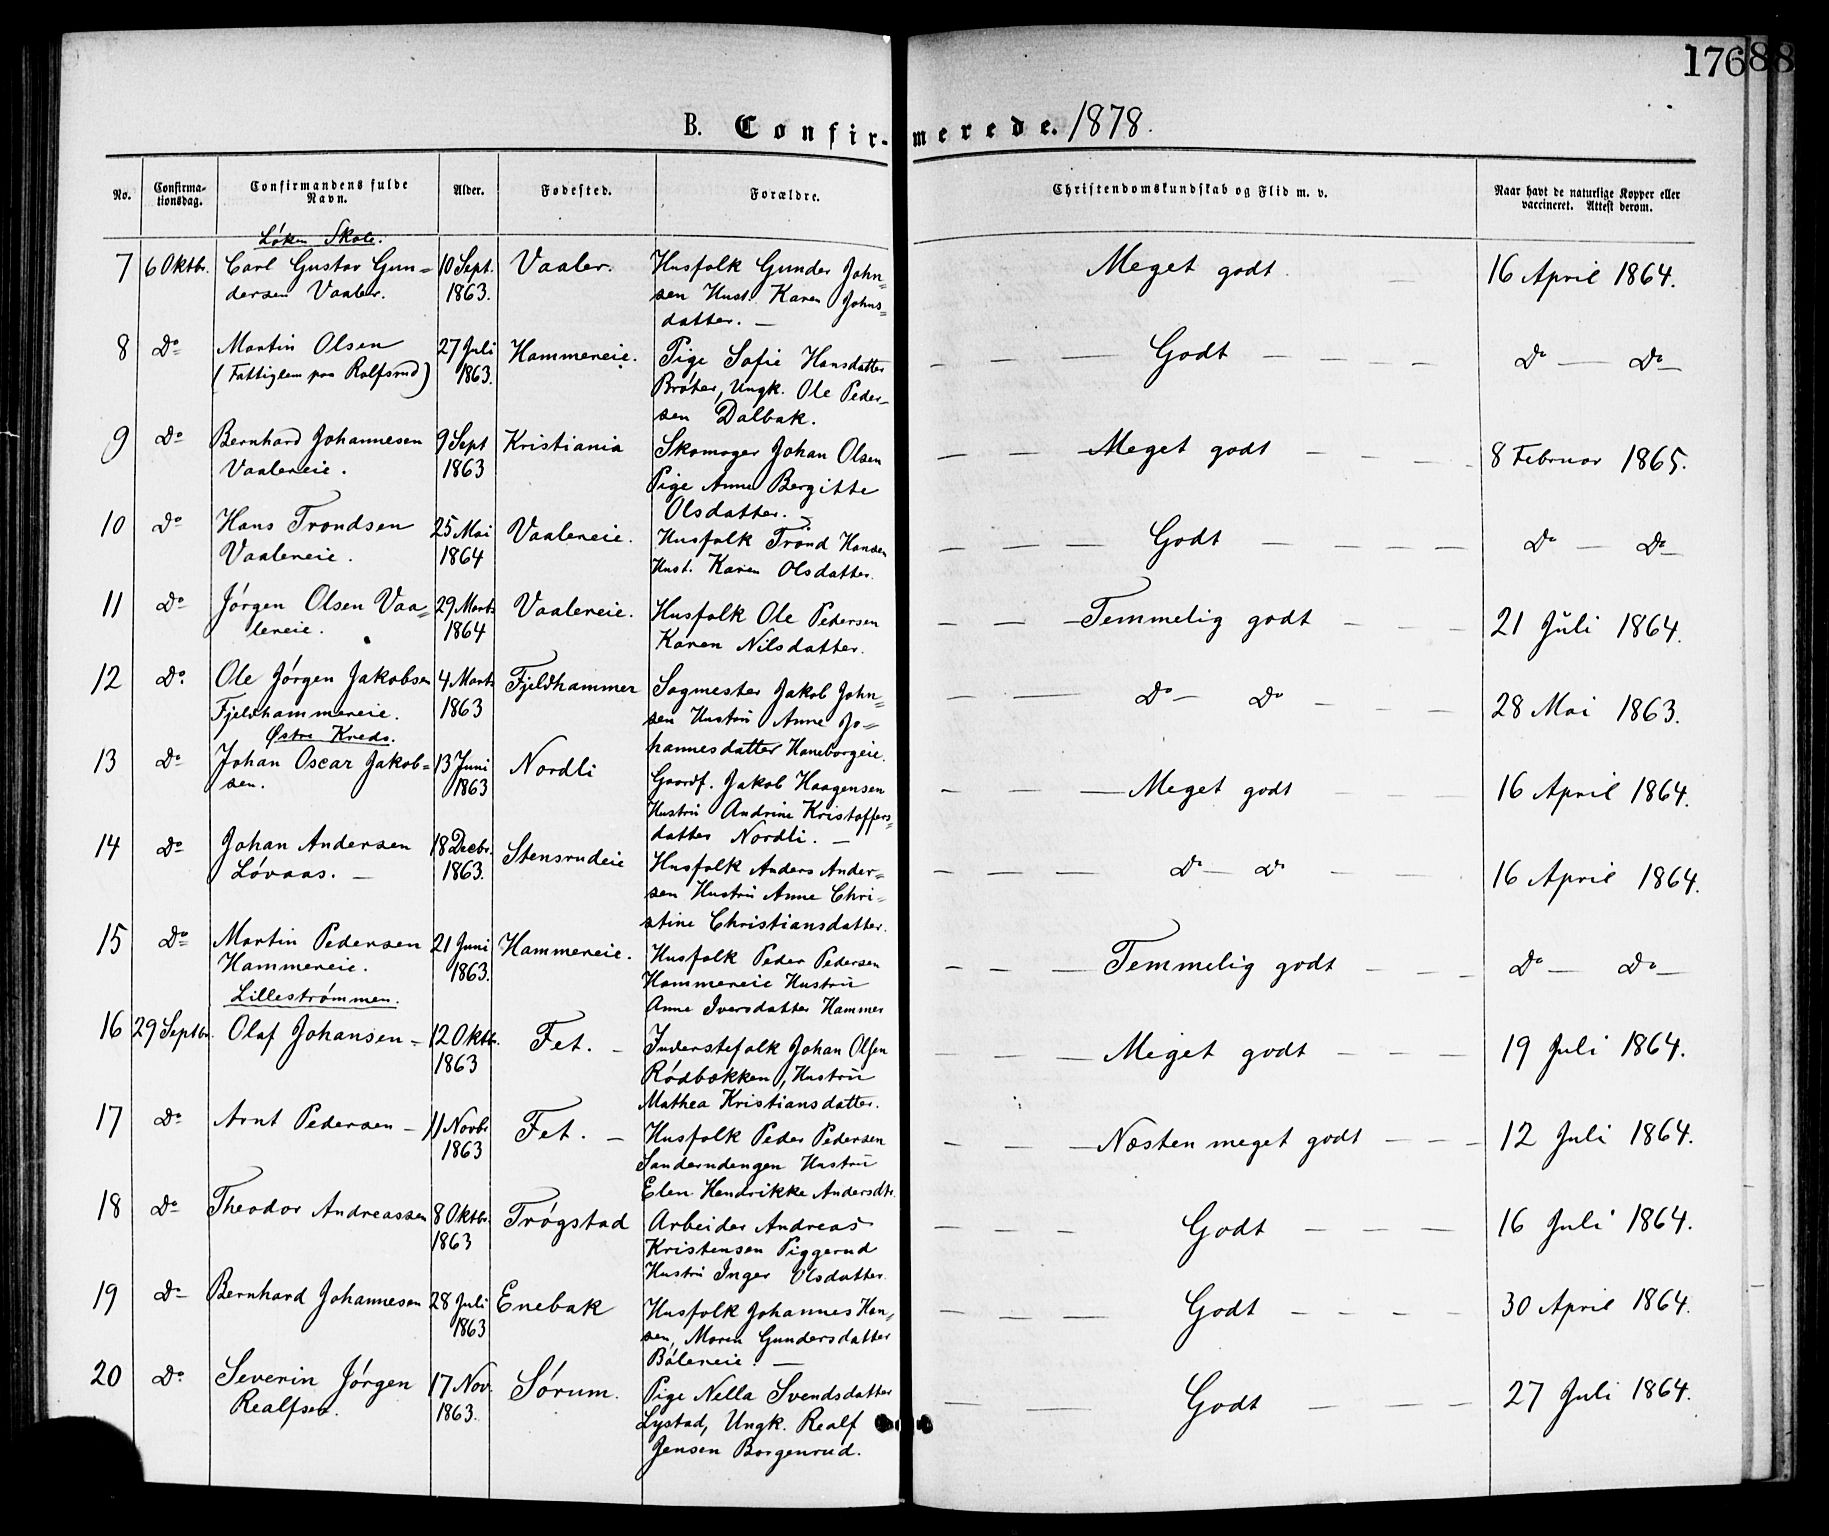 17688
B. Confir-merede. 1878.
No. Confirma-tionsdag. Confirmandens fulde Navn. Alder. Fødested. Forældre. Christendomskundskab og Flid m. v. Naar havt de naturlige Kopper eller vaccineret. Attest derom.
Løken Skole.
7 6 Oktbr. Carl Gustav Gun= 10 Sept. Vaaler. Husfolk Gunder John= Meget godt. — 16 April 1864.
dersen Vaaler. 1863. sen Hust. Karen Johns=
datter. —
8 Do Martin Olsen 27 Juli Hammereie. Pige Sofie Hansdatter — — — Godt — — — Do — Do —
(Fattiglem paa Rolfsrud) 1863. Bråter, Ungk. Ole Peder-
sen Dalbak.
9 Do Bernhard Johannesen 9 Sept Kristiania Skomager Johan Olsen — — — Meget godt — — — — 8 Februar 1865.
Vaalereie. 1863 Pige Anne Bergitte
Olsdatter. —
10 Do Hans Trondsen 25 Mai Vaalereie. Husfolk Trond Hansen — — — Godt — — — — Do — Do —
Vaalereie. 1864 Hust. Karen Olsdatter.
11 Do Jørgen Olsen Vaa= 29 Marts Vaalereie. Husfolk Ole Pedersen — — — Temmelig godt — — — 21 Juli 1864.
lereie. 1864 Karen Nilsdatter.
12 Do. Ole Jørgen Jakobsen 4 Marts Fjeldhammer Sagmester Jakob John= — — Do — Do — — — 28 Mai 1863.
Fjeldhammereie. 1863 sen Hustru Anne Jo=
Østre Kreds. hannesdatter Haneborgeie.
13 Do Johan Oscar Jakob= 13 Juni Nordli Gaardf. Jakob Haagensen — — — Meget godt — — — 16 April 1864.
sen. 1863 Hustru Andrine Kristoffers=
datter Nordli. —
14 Do Johan Andersen 18 Decbr. Stensrudeie Husfolk Anders Ander= — — — Do — Do — — 16 April 1864.
Løvaas. — 1863. sen Hustru Anne Chri-
stine Christiansdatter.
15 Do Martin Pedersen 21 Juni Hammereie. Husfolk Peder Pedersen — — — Temmelig godt — — — Do — Do —
Hammereie. 1863. Hammereie Hustru
Lillestrømmen. Anne Iversdatter Hammer
16 29 Septbr. Olaf Johansen - 12 Oktbr. Fet. — Inderstefolk Johan Olsen — — Meget godt — — — 19 Juli 1864.
1863 Rødbækken, Hustru
Mathea Kristiansdatter.
17 Do Arnt Pedersen — 11 Novbr Fet. — Husfolk Peder Pedersen — — — Næsten meget godt — — — 12 Juli 1864.
1863 Sanderudengen Hustru
Elen Hendrikke Andersdtr.
18 Do Theodor Andreassen 8 Oktbr. Trøgstad Arbeider Andreas — — — Godt — — — 16 Juli 1864.
1863 Kristensen Piggerud
Hustru Inger Olsdatter.
19 Do Bernhard Johannesen 28 Juli Enebak Husfolk Johannes Han= — — — Godt — — — — 30 April 1864.
1863 sen, Maren Gundersdatter
Bålereie. —
20 Do. Severin Jørgen 17 Nov. Sørum. Pige Nella Svendsdatter — — Godt — — — 27 Juli 1864.
Realfsen. 1863. Lystad, Ungk. Realf
Jensen Borgenrud.